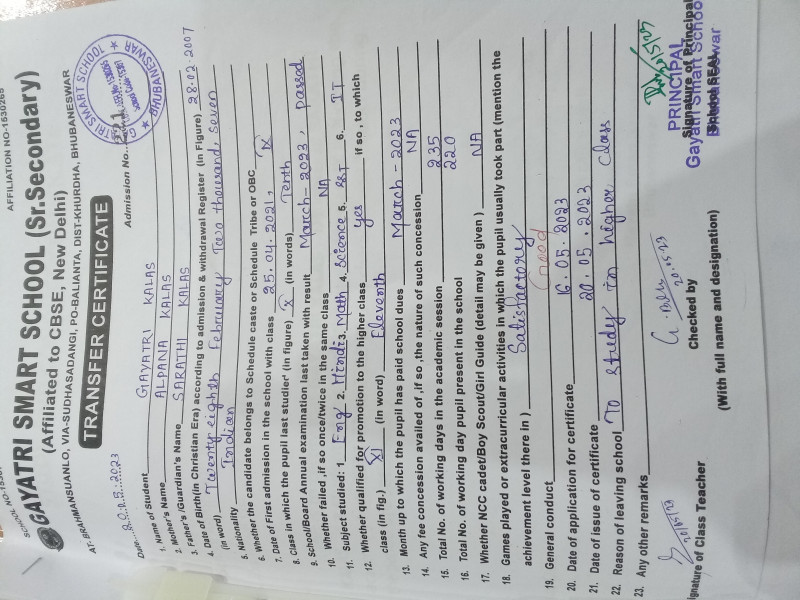 AFFILIATION NO-1530266
SCHOOL NO-
GAYATRI SMART SCHOOL (Sr.Secondary)
(Affiliated to CBSE, New Delhi)
AT: BRAHMANSUANLO, VIA-SUDHASADANGI, PO-BALIANTA, DIST-KHURDHA, BHUBANESWAR
TRANSFER CERTIFICATE
Date... 20.05.2023 Admission No...
1. Name of Student GAYATRI KALAS
2. Mother's Name ALPANA KALAS
3. Father's /Guardian's Name SARATHI KALAS
4. Date of Birth(in Christian Era) according to admission & withdrawal Register (In Figure) 28.02.2007
(in word) Twenty eighth February Two thousand, seven
5. Nationality Indian
6. Whether the candidate belongs to Schedule caste or Schedule Tribe or OBC
7. Date of First admission in the school with class 25.04.2021, IX
8. Class in which the pupil last studied (in figure) X (in words) Tenth
9. School/Board Annual examination last taken with result March-2023, passed
10. Whether failed ,if so once/twice in the same class NA
11. Subject studied: 1 Eng 2. Hindi 3. Math 4. Science 5. SST 6. IT
12. Whether qualified for promotion to the higher class yes if so , to which
class (in fig.) XI (in word) Eleventh
13. Month up to which the pupil has paid school dues March-2023
14. Any fee concession availed of ,if so ,the nature of such concession NA
15. Total No. of working days in the academic session 235
16. Total No. of working day pupil present in the school 220
17. Whether NCC cadet/Boy Scout/Girl Guide (detail may be given ) NA
18. Games played or extracurricular activities in which the pupil usually took part (mention the
achievement level there in ) Satisfactory
19. General conduct Good
20. Date of application for certificate 16.05.2023
21. Date of issue of certificate 20.05.2023
22. Reason of leaving school To study in higher class
23. Any other remarks
Signature of Class Teacher
Checked by
(With full name and designation)
Signature of Principal
School SEAL
PRINCIPAL
Gayatri Smart School
Bhubaneswar